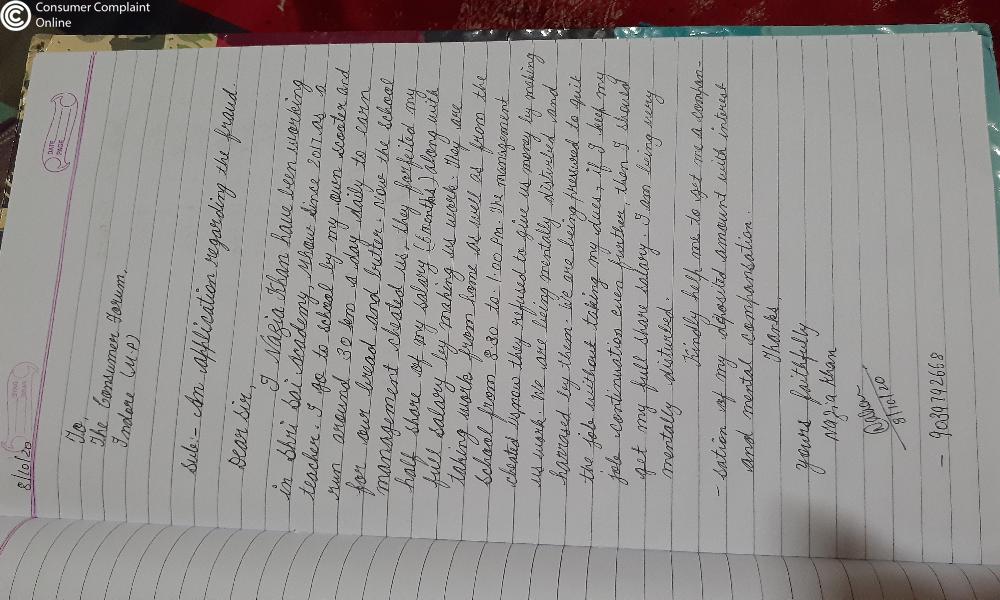 Consumer Complaint
Online
DATE
PAGE
8/10/20
To,
The Consumer Forum,
Indore (M.P)
Sub:- An application regarding the fraud.
Dear Sir,
I Nazia Khan have been working
in Shri Sai academy Mhow since 2017 as a
teacher. I go to school by my own scooter and
run around 30 km a day daily to earn
for our bread and butter. Now the school
management cheated us, they forfeited my
half share of my salary (6 months) along with
full salary by making us work. They are
taking work from home as well as from the
school from 8.30 to 1.00 Pm. The management
cheted us, now they refused to give us money by making
us work. We are being mentally disturbed and
harrased by them. We are being pressured to quit
the job without taking my dues, if I keep my
job continuation even further, then I should
get my full share salary. I am being very
mentally disturbed.
Kindly help me to get me a compan-
- sation of my deposited amount with interest
and mental companisation.
Thanks,
yours faithfully
Nazia Khan
8/10/20
- 9039742668